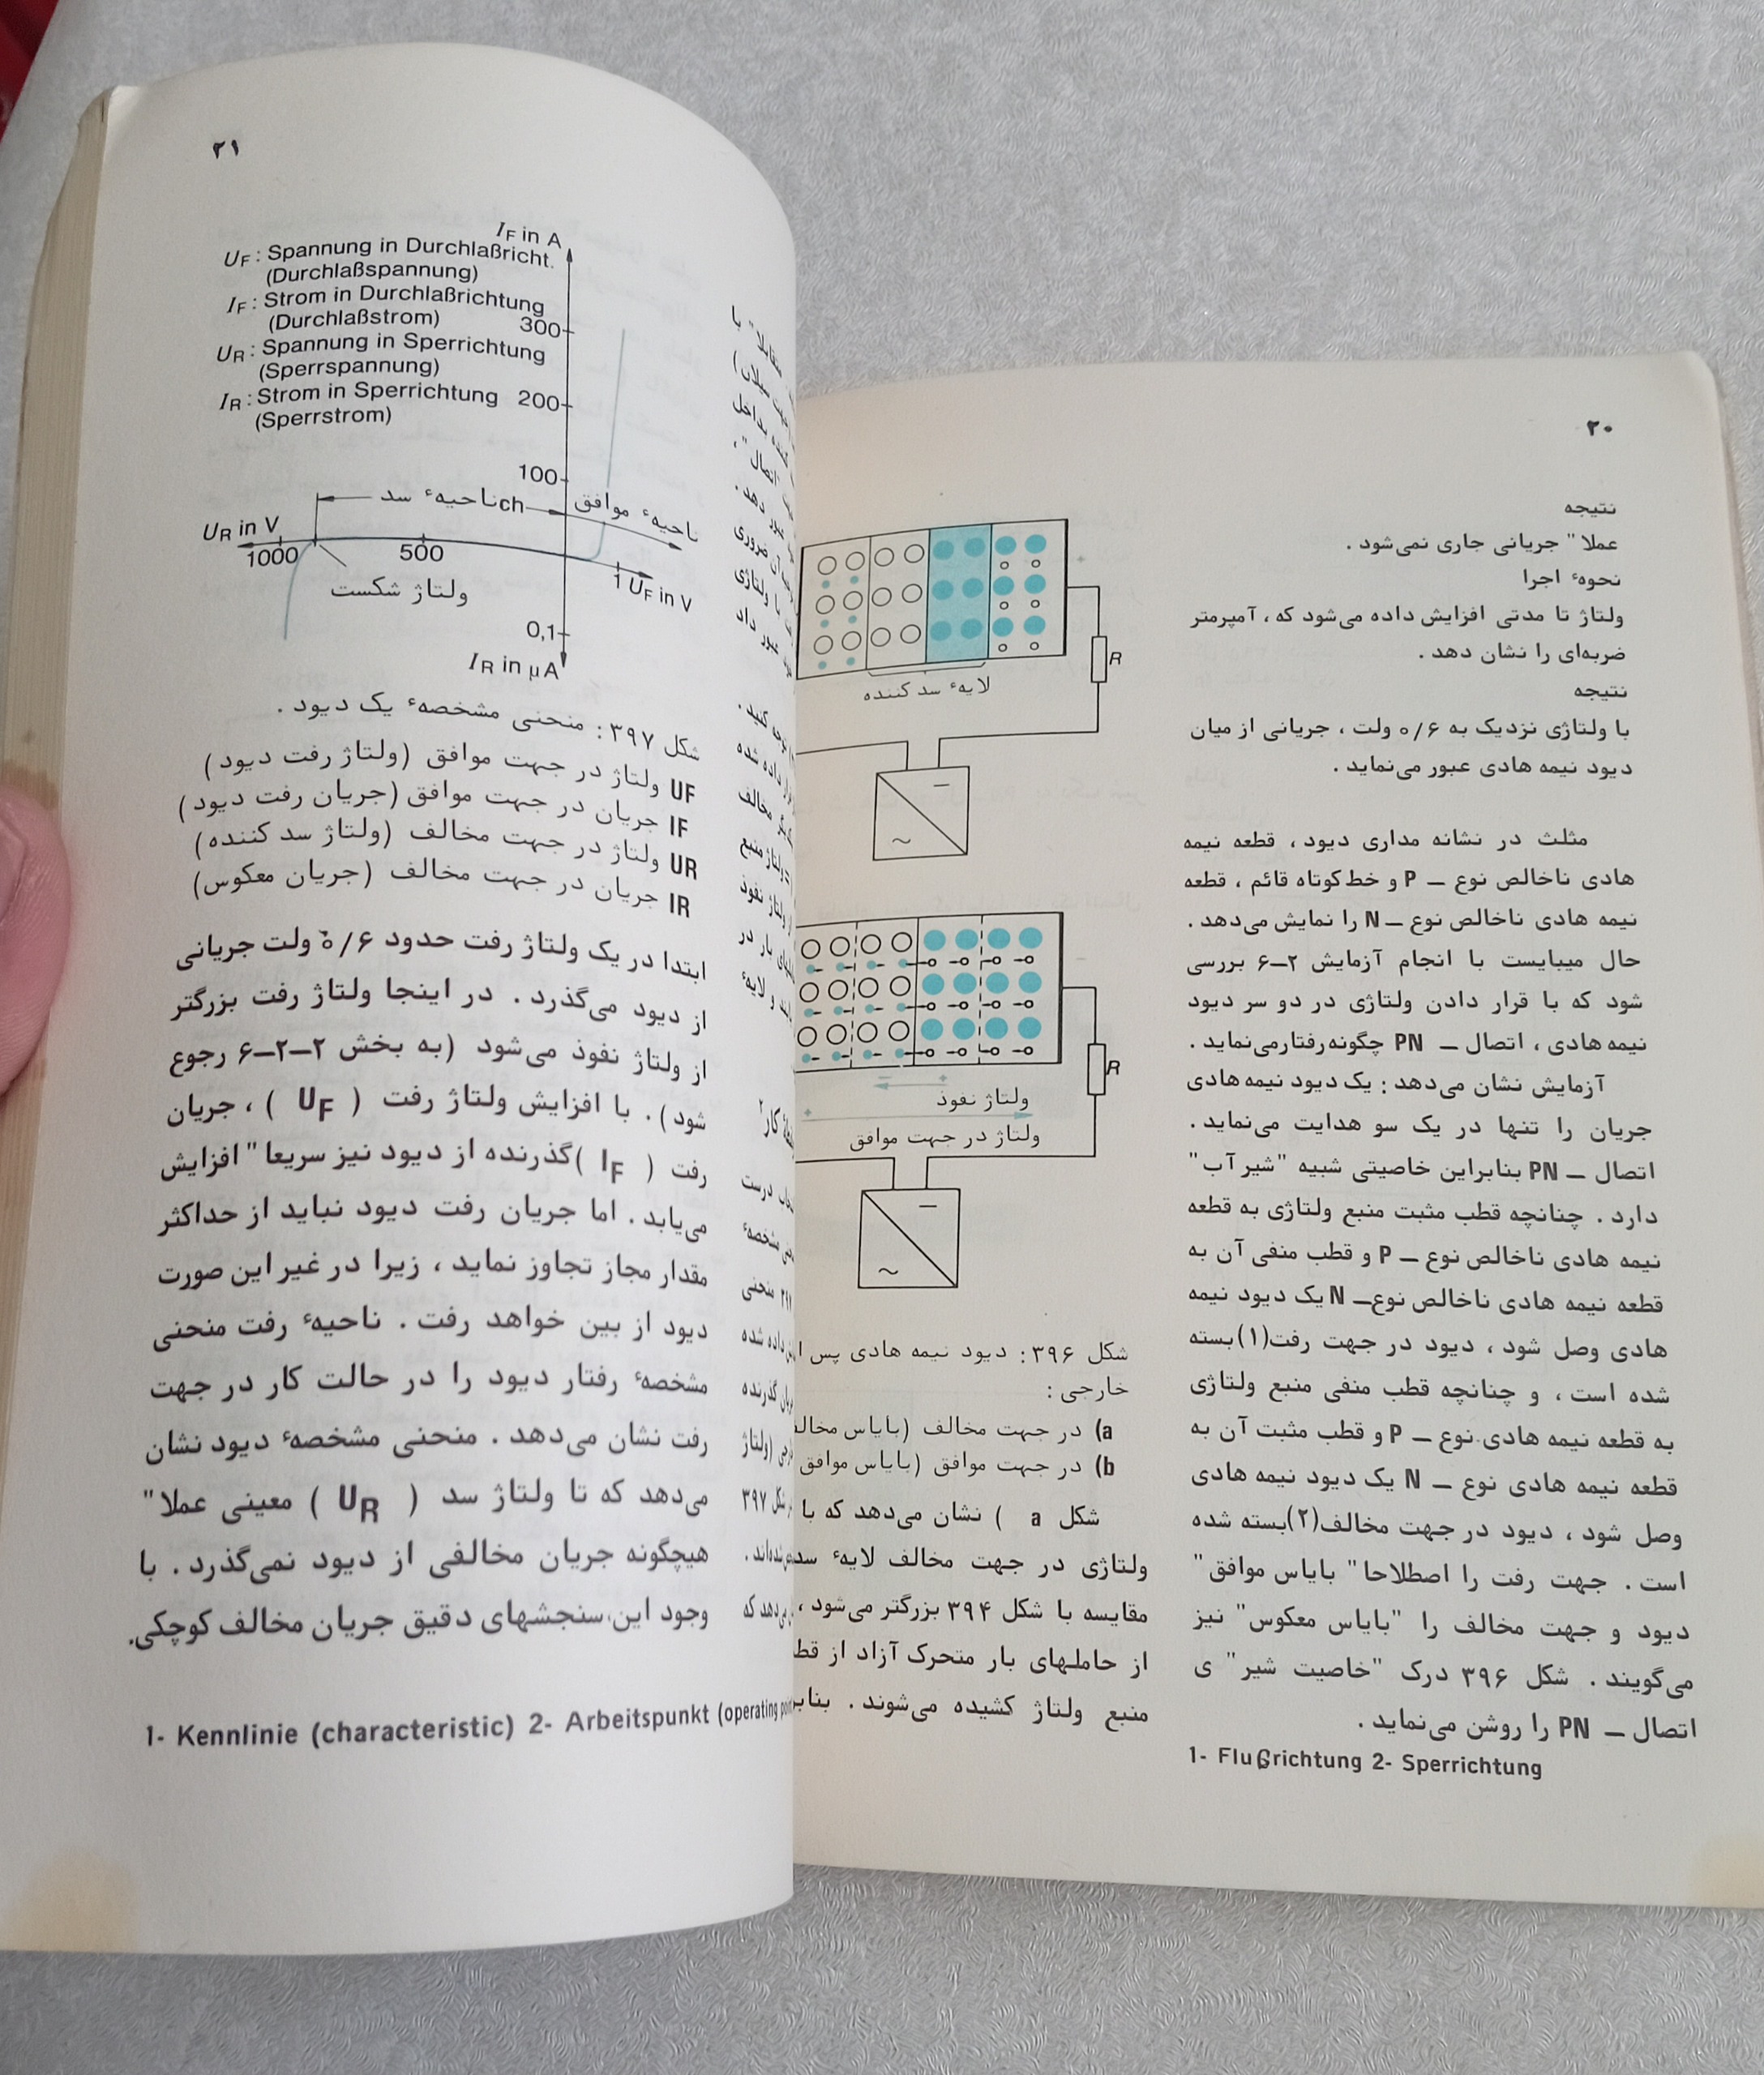 ۲۰
نتیجه
عملا" جریانی جاری نمی‌شود .
نحوهٔ اجرا
ولتاژ تا مدتی افزایش داده می‌شود که ، آمپرمتر
ضربه‌ای را نشان دهد .
نتیجه
با ولتاژی نزدیک به ۰/۶ ولت ، جریانی از میان
دیود نیمه هادی عبور می‌نماید .
مثلث در نشانه مداری دیود ، قطعه نیمه
هادی ناخالص نوع – P و خط کوتاه قائم ، قطعه
نیمه هادی ناخالص نوع – N را نمایش می‌دهد .
حال میبایست با انجام آزمایش ۲–۶ بررسی
شود که با قرار دادن ولتاژی در دو سر دیود
نیمه هادی ، اتصال – PN چگونه رفتار می‌نماید .
آزمایش نشان می‌دهد : یک دیود نیمه هادی
جریان را تنها در یک سو هدایت می‌نماید .
اتصال – PN بنابراین خاصیتی شبیه "شیر آب"
دارد . چنانچه قطب مثبت منبع ولتاژی به قطعه
نیمه هادی ناخالص نوع – P و قطب منفی آن به
قطعه نیمه هادی ناخالص نوع– N یک دیود نیمه
هادی وصل شود ، دیود در جهت رفت(۱)بسته
شده است ، و چنانچه قطب منفی منبع ولتاژی
به قطعه نیمه هادی نوع – P و قطب مثبت آن به
قطعه نیمه هادی نوع – N یک دیود نیمه هادی
وصل شود ، دیود در جهت مخالف(۲)بسته شده
است . جهت رفت را اصطلاحا" بایاس موافق"
دیود و جهت مخالف را "بایاس معکوس" نیز
می‌گویند . شکل ۳۹۶ درک "خاصیت شیر" ی
اتصال – PN را روشن می‌نماید .
1- Flußrichtung 2- Sperrichtung
R
لایهٔ سد کننده
– ~
R
ولتاژ نفوذ
ولتاژ در جهت موافق
– ~
شکل ۳۹۶: دیود نیمه هادی پس
خارجی :
a) در جهت مخالف (بایاس
b) در جهت موافق (بایاس موافق
شکل a ) نشان می‌دهد که با
ولتاژی در جهت مخالف لایهٔ
مقایسه با شکل ۳۹۴ بزرگتر می‌شود ،
از حاملهای بار متحرک آزاد از
منبع ولتاژ کشیده می‌شوند .
۲۱
IF in A
UF : Spannung in Durchlaßricht.
(Durchlaßspannung)
IF : Strom in Durchlaßrichtung
(Durchlaßstrom)
300
UR : Spannung in Sperrichtung
(Sperrspannung)
IR : Strom in Sperrichtung
(Sperrstrom)
200
100
ناحیهٔ سد ch
ناحیهٔ موافق
UR in V
1000
500
1 UF in V
ولتاژ شکست
0,1
IR in µA
شکل ۳۹۷: منحنی مشخصهٔ یک دیود .
UF ولتاژ در جهت موافق (ولتاژ رفت دیود)
IF جریان در جهت موافق (جریان رفت دیود)
UR ولتاژ در جهت مخالف (ولتاژ سد کننده)
IR جریان در جهت مخالف (جریان معکوس)
ابتدا در یک ولتاژ رفت حدود ۰/۶ ولت جریانی
از دیود می‌گذرد . در اینجا ولتاژ رفت بزرگتر
از ولتاژ نفوذ می‌شود (به بخش ۲–۲–۶ رجوع
شود) . با افزایش ولتاژ رفت ( UF ) ، جریان
رفت ( IF )گذرنده از دیود نیز سریعا" افزایش
می‌یابد . اما جریان رفت دیود نباید از حداکثر
مقدار مجاز تجاوز نماید ، زیرا در غیر این صورت
دیود از بین خواهد رفت . ناحیهٔ رفت منحنی
مشخصهٔ رفتار دیود را در حالت کار در جهت
رفت نشان می‌دهد . منحنی مشخصهٔ دیود نشان
می‌دهد که تا ولتاژ سد ( UR ) معینی عملا"
هیچگونه جریان مخالفی از دیود نمی‌گذرد . با
وجود این سنجشهای دقیق جریان مخالف کوچکی
1- Kennlinie (characteristic) 2- Arbeitspunkt (operating